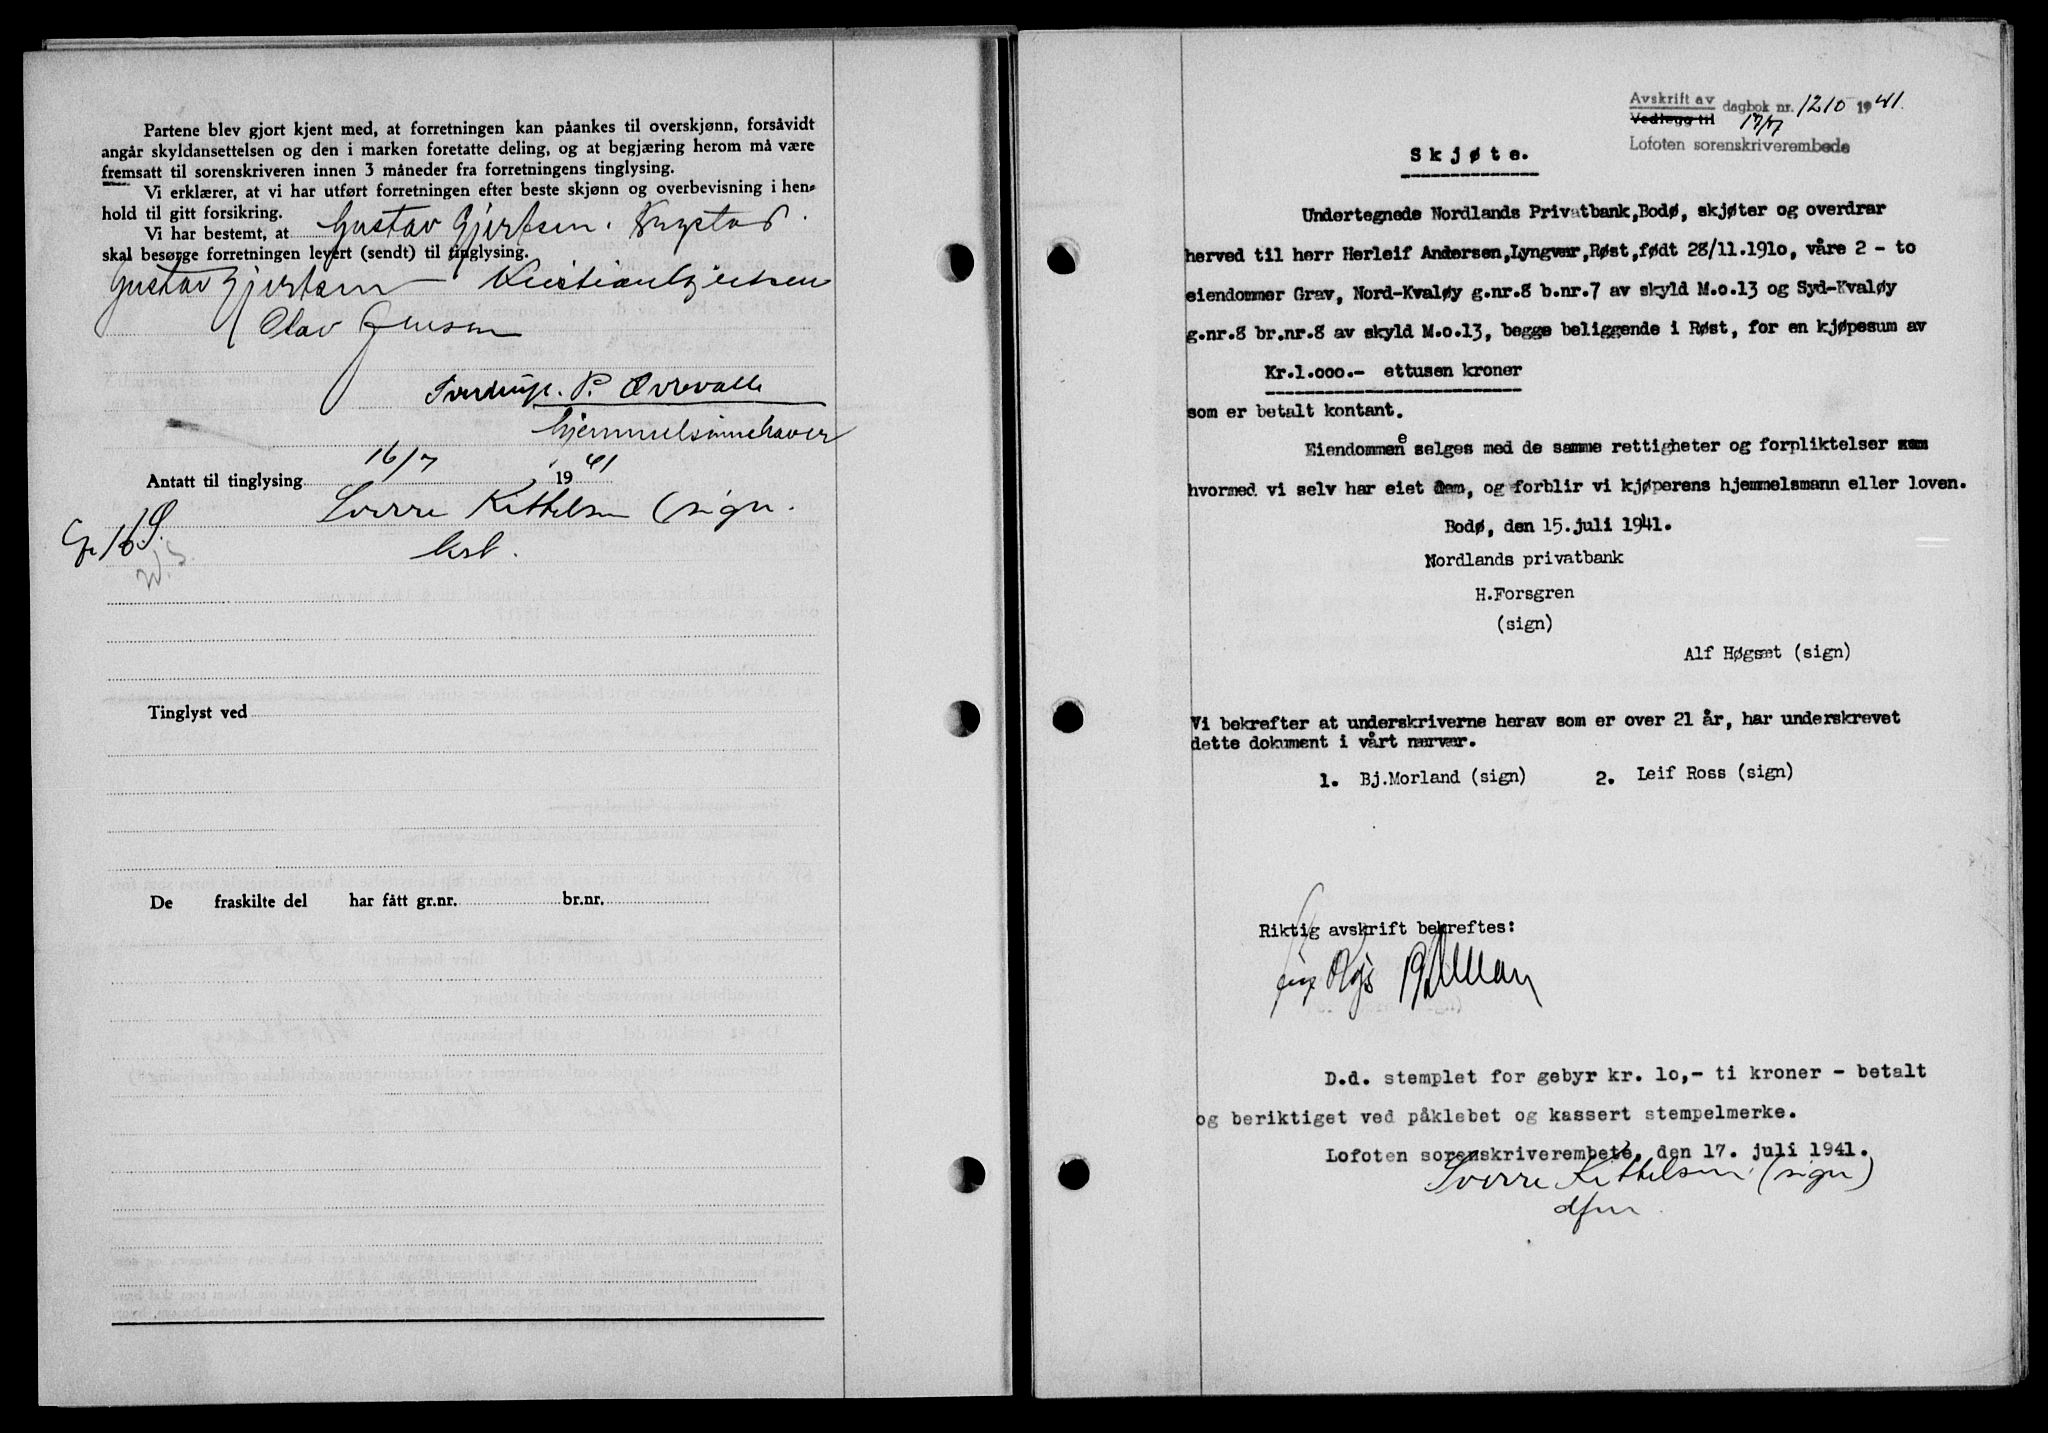 Partene blev gjort kjent med, at forretningen kan påankes til overskjønn, forsåvidt
angår skyldansettelsen og den i marken foretatte deling, og at begjæring herom må være
fremsatt til sorenskriveren innen 3 måneder fra forretningens tinglysing.
Vi erklærer, at vi har utført forretningen efter beste skjønn og overbevisning i hen-
hold til gitt forsikring.
Vi har bestemt, at Gustav Gjertsen.
skal besørge forretningen levert (sendt) til tinglysing.
Gustav Gjertsen Kristian Gjertsen
Olav Jensen
Sverdrup. P.Övrevalle
hjemmelsinnehaver
Antatt til tinglysing 16/7 1941
Sverre Kittelsen (sign.
Tinglyst ved
De fraskilte del har fått gr.nr. br.nr.
Avskrift av dagbok nr. 1210 1941.
Vedlegg til 17/7
Lofoten sorenskriverembede
Skjøte.
Undertegnede Nordlands Privatbank, Bodø, skjøter og overdrar
herved til herr Herleif Andersen, Lyngvær, Røst, født 28/11.1910, våre 2 - to
eiendommer Grav, Nord-Kvaløy g.nr.8 b.nr.7 av skyld M.o.13 og Syd-Kvaløy
g.nr.8 br.nr.8 av skyld M.o.13, begge beliggende i Røst, for en kjøpesum av
Kr.1.000.- ettusen kroner
som er betalt kontant.
Eiendommene selges med de samme rettigheter og forpliktelser som
hvormed vi selv har eiet dem, og forblir vi kjøperens hjemmelsmann eller loven.
Bodø, den 15.juli 1941.
Nordlands privatbank
H.Forsgren
(sign)
Alf Høgset (sign)
Vi bekrefter at underskriverne herav som er over 21 år, har underskrevet
dette dokument i vårt nærvær.
1. Bj.Morland (sign) 2. Leif Ross (sign)
Riktig avskrift bekreftes:
D.d. stemplet for gebyr kr. 10,- ti kroner - betalt
og beriktiget ved påklebet og kassert stempelmerke.
Lofoten sorenskriverembete, den 17. juli 1941.
Sverre Kittelsen (sign)
dfm